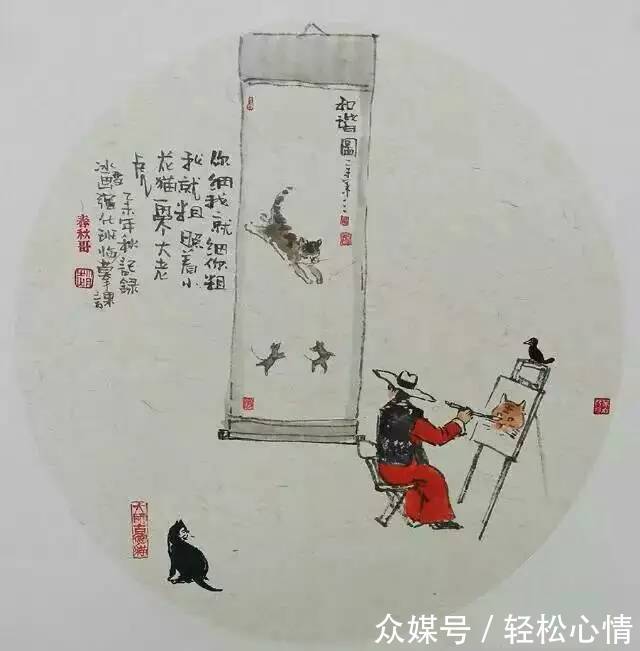 和谐圖
你细我就细你粗
我就粗照着小
花猫画大老
虎
乙未年秋記録
强化班临摹課
春秋哥
众媒号 / 轻松心情